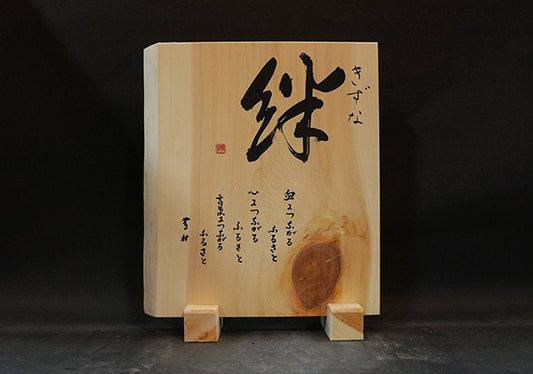 きずな
絆
血につながる
ふるさと
心につながる
ふるさと
言葉につながる
ふるさと
藤村